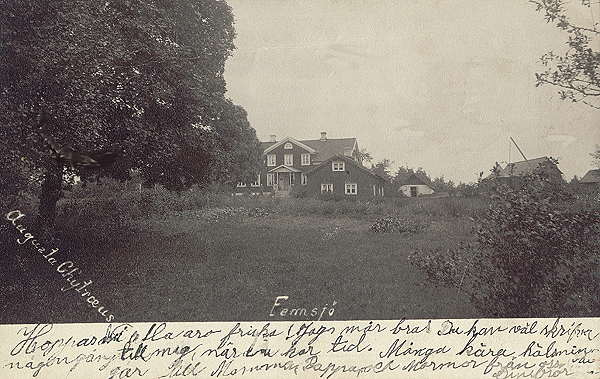 Augusta Chytræus
Femsjö
Hoppas Ni alla äro friska. Jag mår bra. Du kan väl skrifva
någon gång till mig, när du har tid. Många kära hälsnin
gar till Mamma, Pappa och Mormor från oss